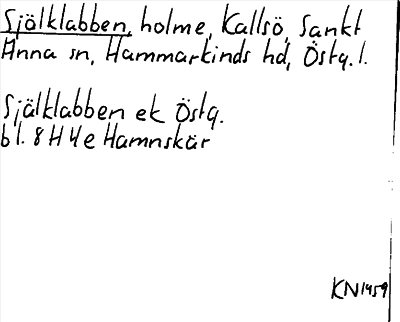 Själklabben, holme, Kallsö, Sankt
Anna sn, Hammarkinds hd, Östg. l.
Själklabben ek Östg.
bl. 8 H 4 e Hamnskär
KN 1959